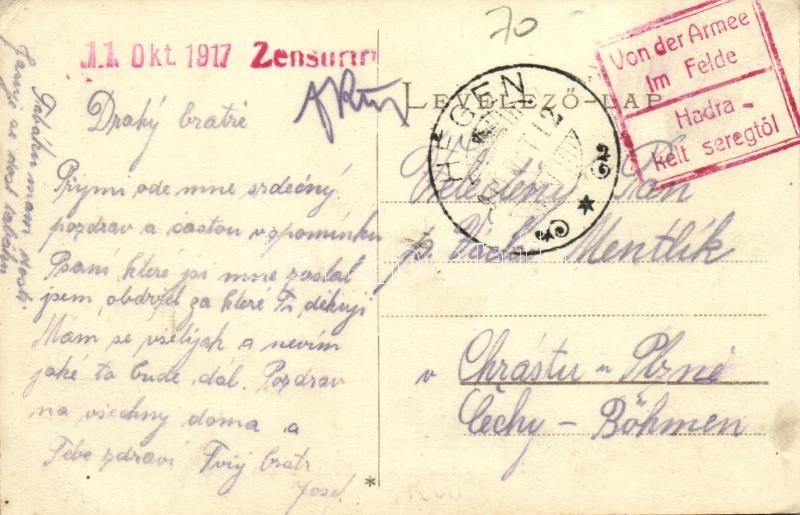 70
11. Okt. 1917 Zensuriert
LEVELEZŐ-LAP
Von der Armee
Im Felde
Hadra-
kelt seregtől
HEGEN
Drahý bratře
Přijmi ode mne srdečný
pozdrav a častou vzpomínku
Psaní které jsi mne poslal
jsem obdržel za které Ti děkuji
Mám se všelijak a nevím
jaké to bude dál. Pozdrav
na všechny doma a
Tebe zdraví Tvůj bratr
Josef.
Tabáku mam dosti.
Velectěný Pan
p. Václav Mentlík
v Chrástu u Plzně
Čechy - Böhmen